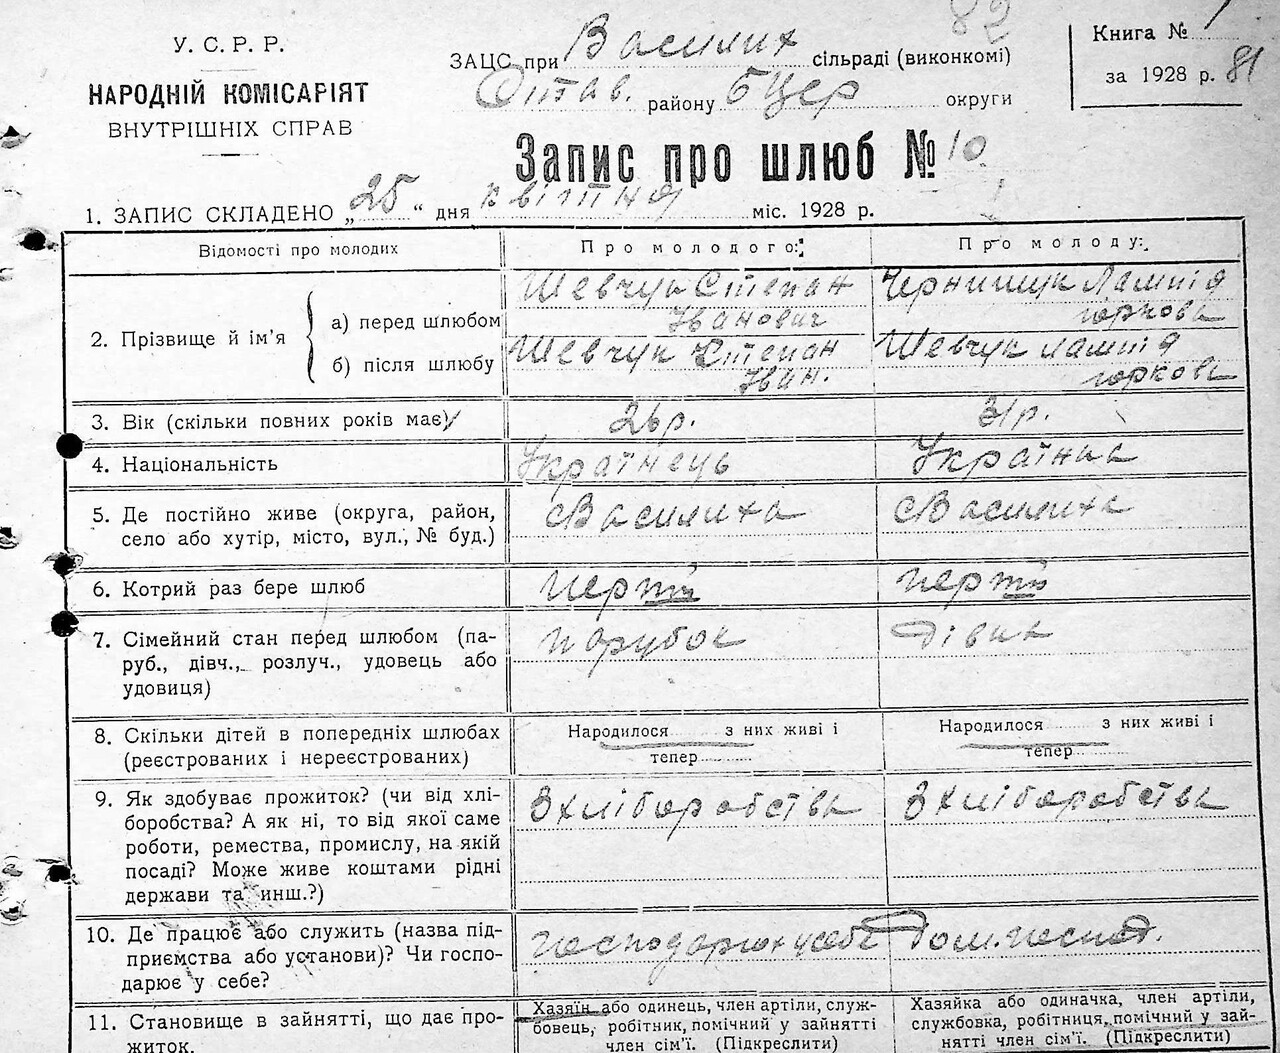 82
У. С. Р. Р.
НАРОДНІЙ КОМІСАРІЯТ
ВНУТРІШНІХ СПРАВ
ЗАЦС при Василих сільраді (виконкомі)
Ситав. району БЦер округи
Книга №
за 1928 р. 81
Запис про шлюб № 10
1. ЗАПИС СКЛАДЕНО „25“ дня квітня міс. 1928 р.
Відомості про молодих
Про молодого:
Про молоду:
2. Прізвище й ім’я
а) перед шлюбом
Шевчук Степан
Іванович
Лампія
б) після шлюбу
Шевчук Степан
Іван.
Шевчук Лампія
3. Вік (скільки повних років має)
26р.
31р.
4. Національність
Українець
Українка
5. Де постійно живе (округа, район,
село або хутір, місто, вул., № буд.)
с Василиха
с Василиха
6. Котрий раз бере шлюб
перший
перший
7. Сімейний стан перед шлюбом (па-
руб., дівч., розлуч., удовець або
удовиця)
парубок
дівка
8. Скільки дітей в попередніх шлюбах
(реєстрованих і нереєстрованих)
Народилося з них живі і
тепер
Народилося з них живі і
тепер
9. Як здобуває прожиток? (чи від хлі-
боробства? А як ні, то від якої саме
роботи, ремества, промислу, на якій
посаді? Може живе коштами рідні
держави та инш.?)
З хліборобства
З хліборобства
10. Де працює або служить (назва під-
приємства або установи)? Чи госпо-
дарює у себе?
господарює у себе
Дом. госпо.
11. Становище в зайнятті, що дає про-
житок.
Хазяїн або одинець, член артіли, служ-
бовець, робітник, помічний у зайнятті
член сім’ї. (Підкреслити)
Хазяйка або одиначка, член артіли,
службовка, робітниця, помічний у зай-
нятті член сім’ї. (Підкреслити)